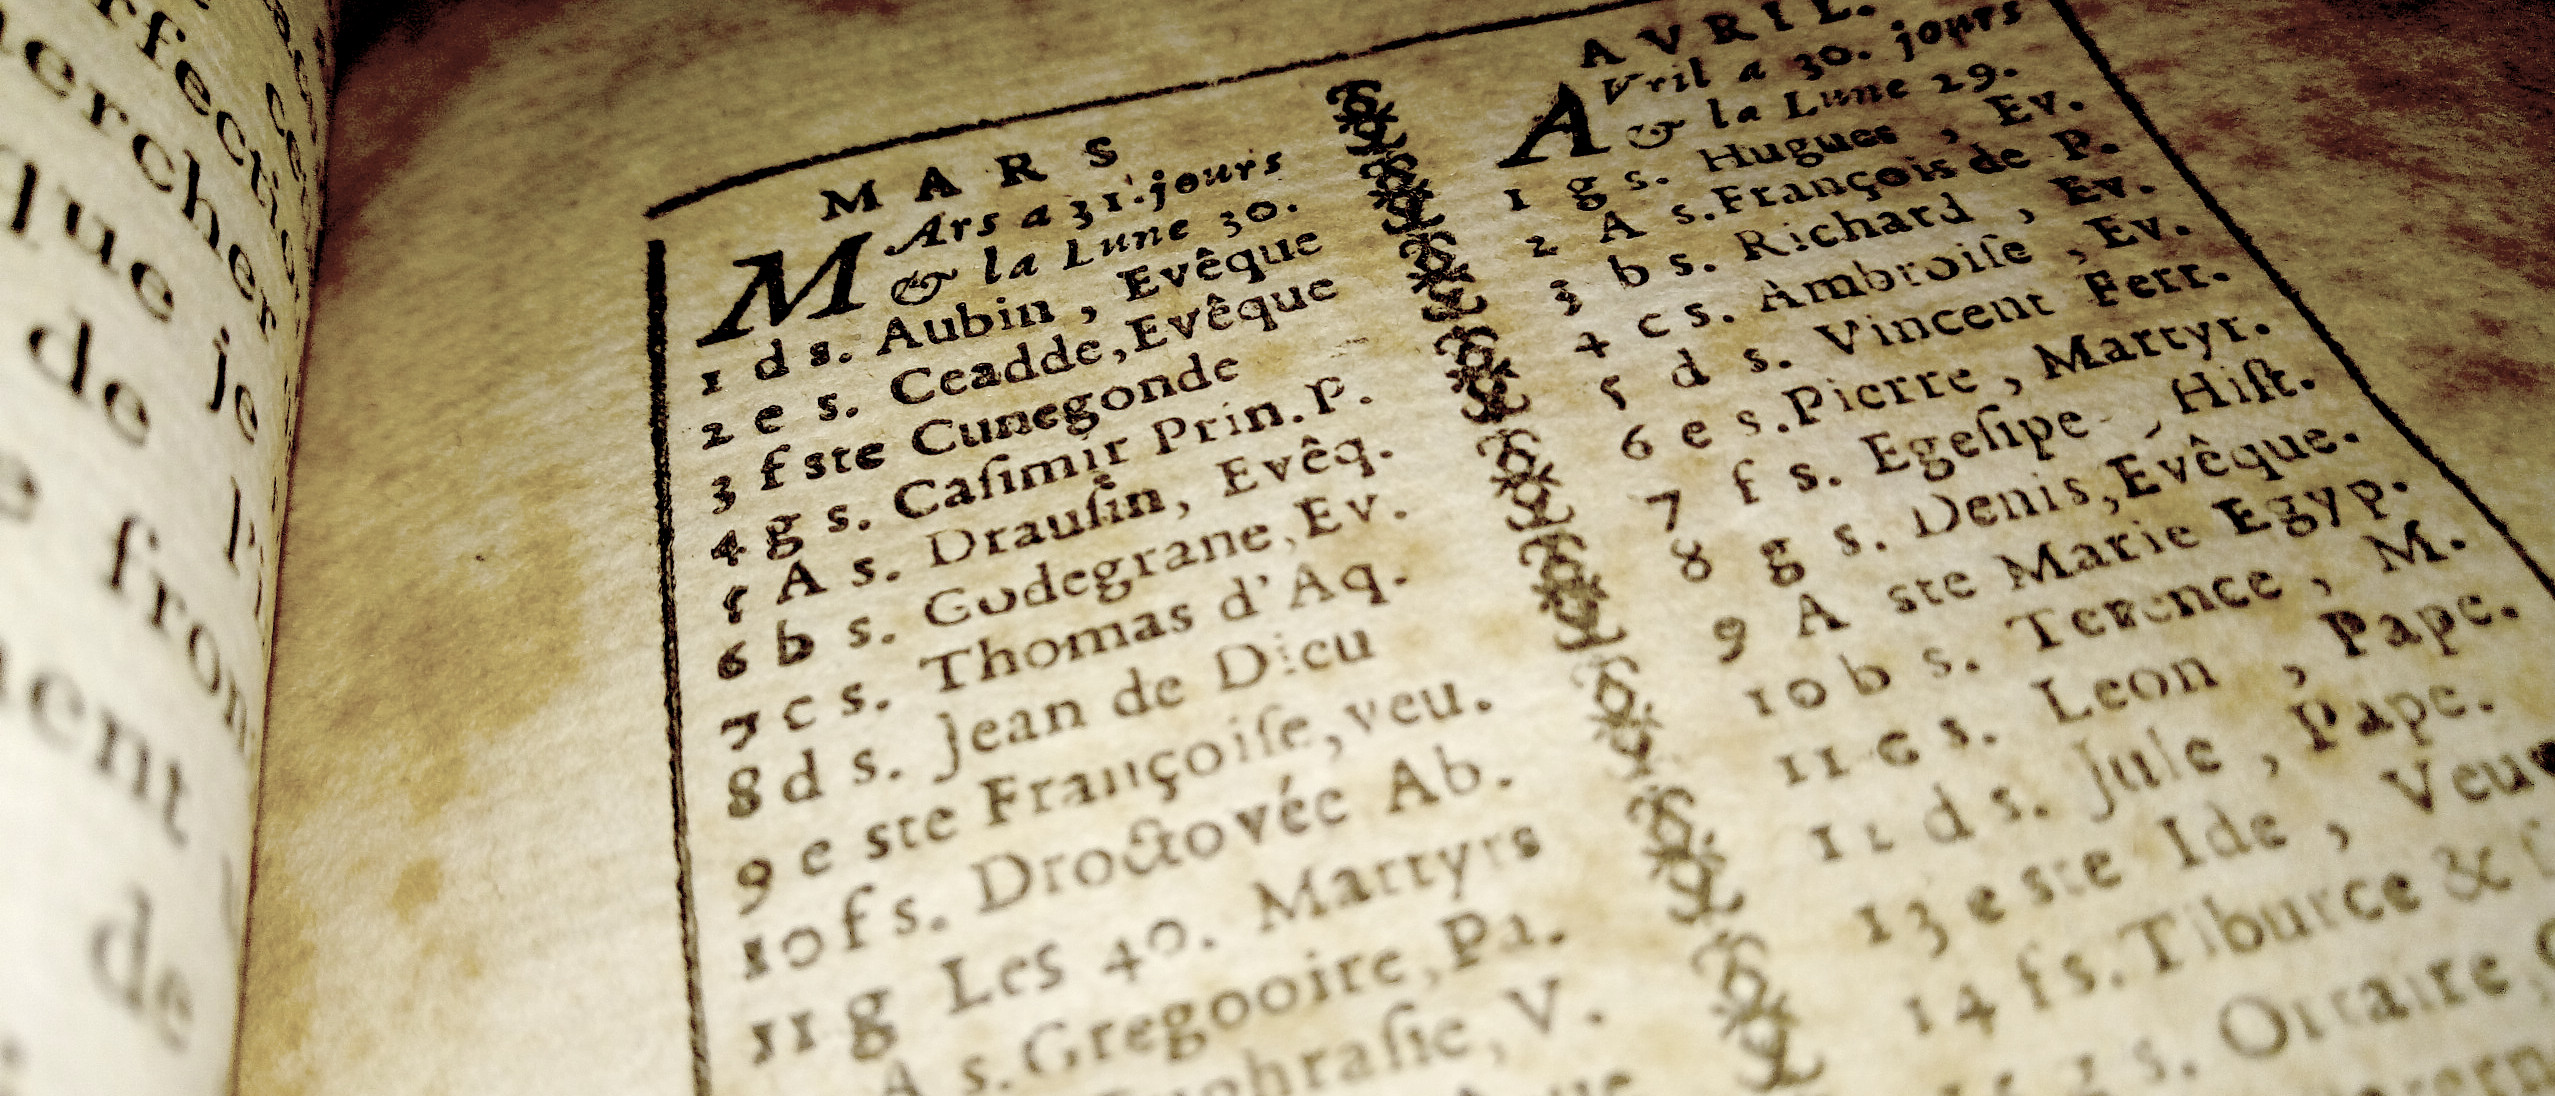 rfectio
ercher
que je
de l'i
fron
ent
de
MARS
MArs a 31. jours
& la Lune 30.
1 d s. Aubin, Evêque
2 e s. Ceadde, Evêque
3 f ste Cunegonde
4 g s. Caſimir Prin. P.
5 A s. Drauſin, Evêq.
6 b s. Godegrane, Ev.
7 c s. Thomas d'Aq.
8 d s. Jean de Dieu
9 e ste Françoiſe, veu.
10 f s. Droctovée Ab.
11 g Les 40. Martyrs
A s. Gregooire, Pa.
phraſie, V.
AVRIL.
AVril a 30. jours
& la Lune 29.
1 g s. Hugues, Ev.
2 A s. François de P.
3 b s. Richard, Ev.
4 c s. Ambroiſe, Ev.
5 d s. Vincent Ferr.
6 e s. Pierre, Martyr.
7 f s. Egeſipe, Hiſt.
8 g s. Denis, Evêque.
9 A ste Marie Egyp.
10 b s. Terence, M.
11 c s. Leon, Pape.
12 d s. Jule, Pape.
13 e ste Ide, Veuve
14 f s. Tiburce &
s. Ortaire,